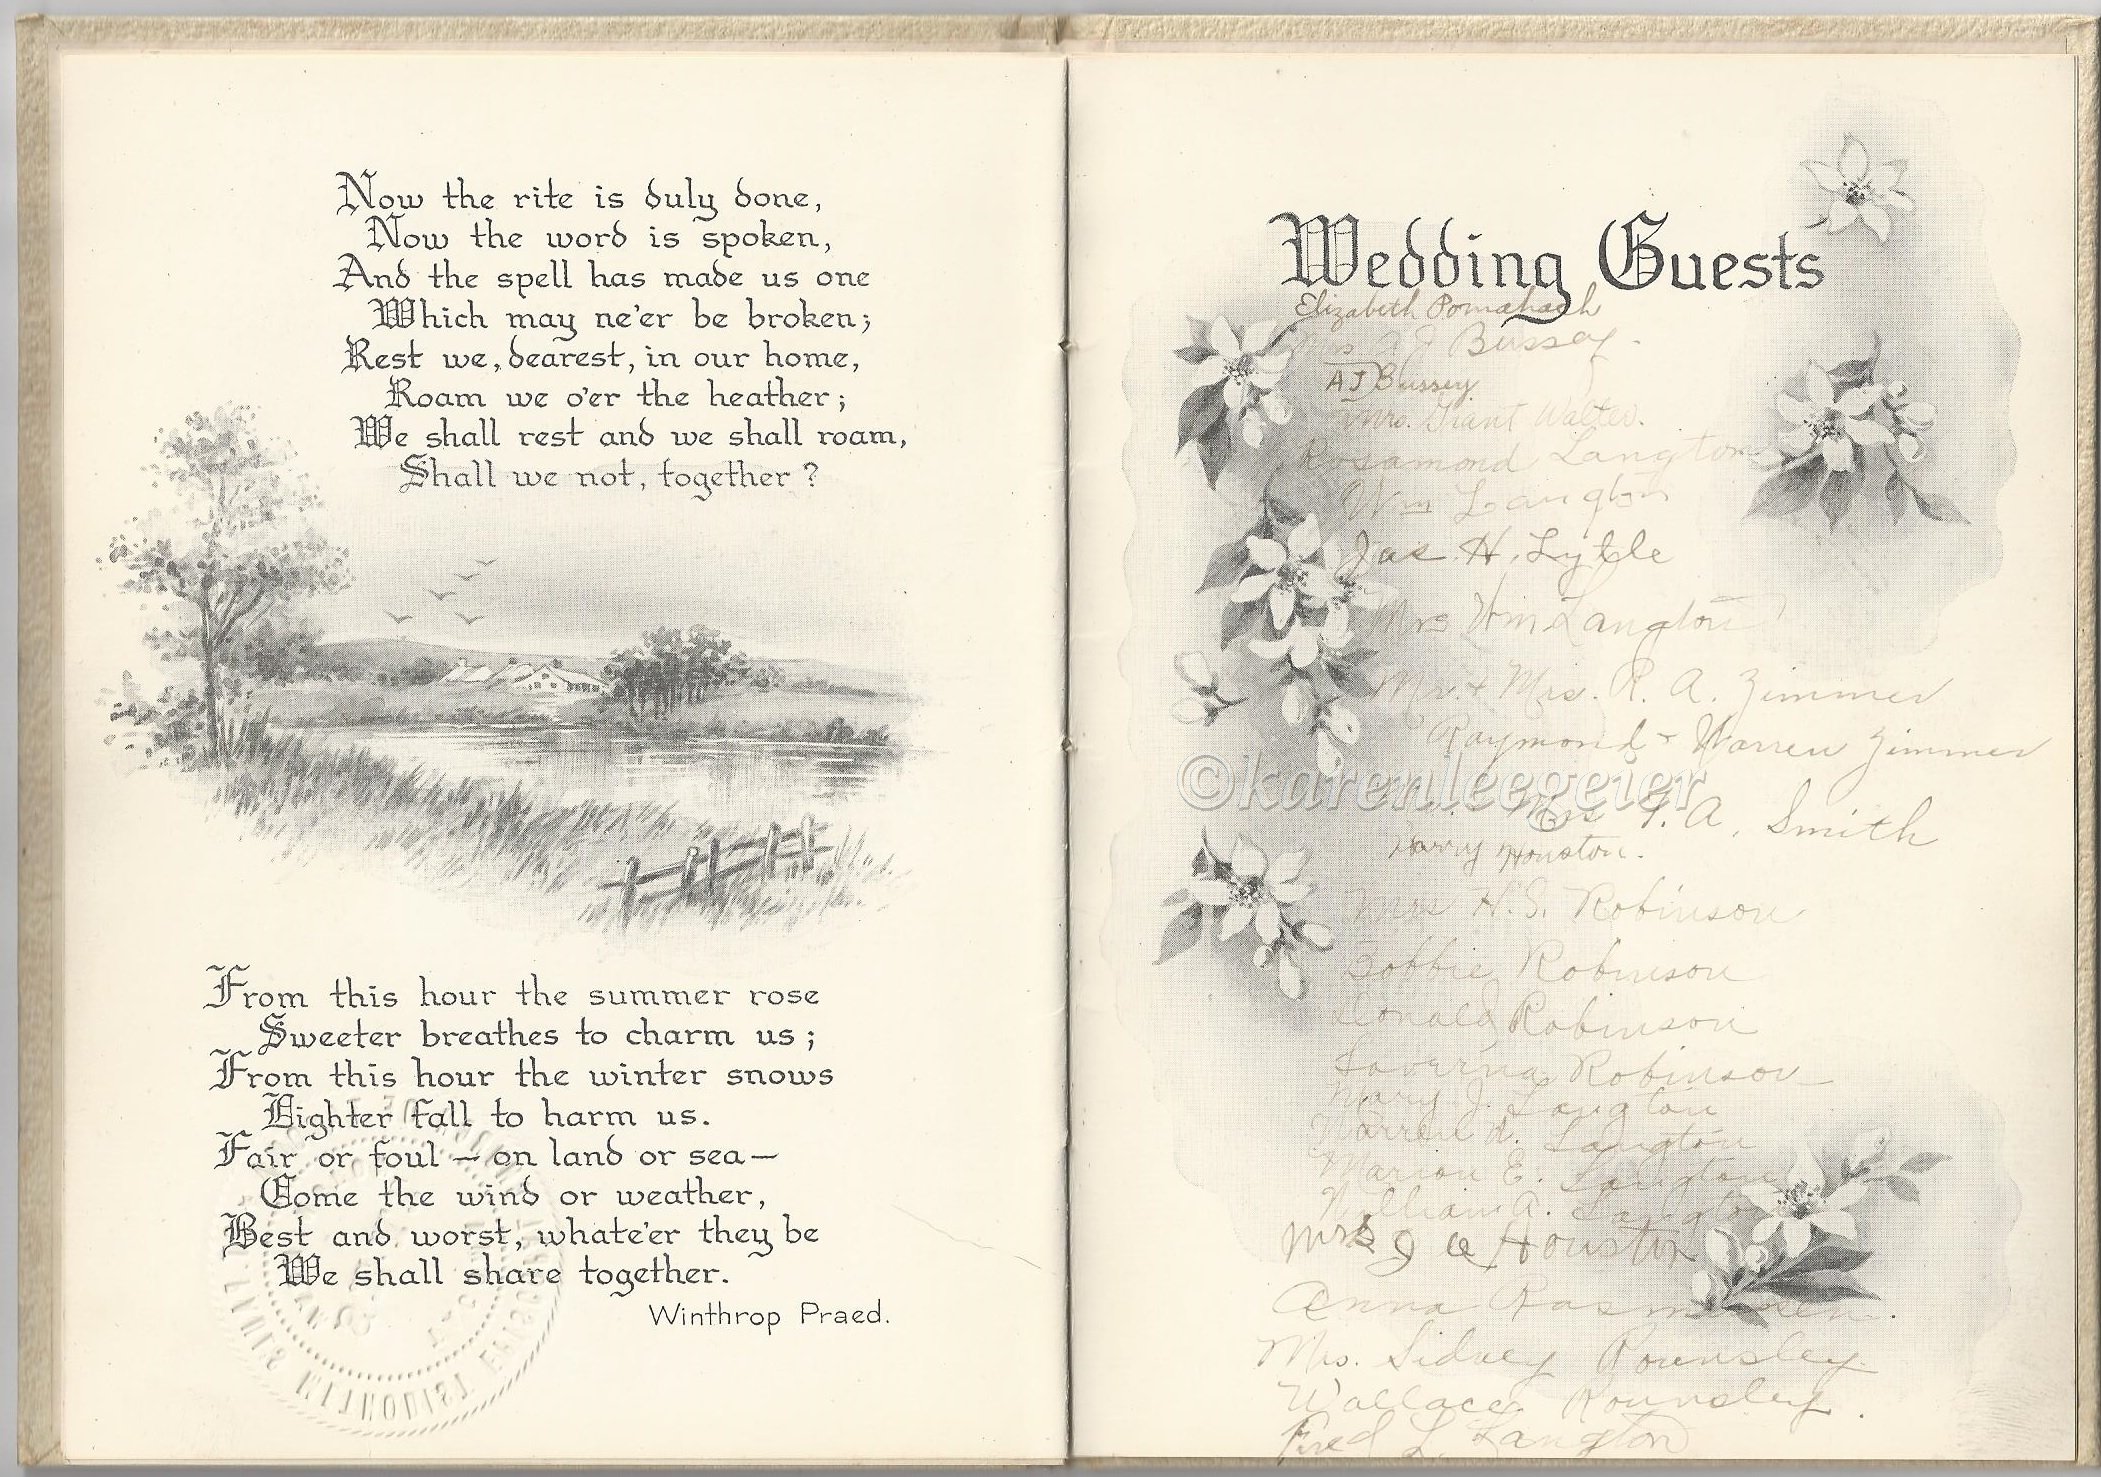 Now the rite is duly done,
Now the word is spoken,
And the spell has made us one
Which may ne'er be broken;
Rest we, dearest, in our home,
Roam we o'er the heather;
We shall rest and we shall roam,
Shall we not, together?
From this hour the summer rose
Sweeter breathes to charm us;
From this hour the winter snows
Lighter fall to harm us.
Fair or foul — on land or sea —
Come the wind or weather,
Best and worst, whate'er they be
We shall share together.
Winthrop Praed.
METHODIST EPISCOPAL
Wedding Guests
Elizabeth
Mrs A J Bussey.
A J Bussey
Mrs. Grant Walter.
Rosamond Langton
Wm Langton
Jas. H. Lytle
Mrs Wm Langton
Mr. + Mrs. R. A. Zimmer
Raymond + Warren Zimmer
©karenleegeier
Mrs F. A. Smith
Harry Houston.
Mrs H. S. Robinson
Bobbie Robinson
Donald Robinson
Laverna Robinson
Mary J. Langton
Warren A. Langton
Marion E. Langton
William A. Langton
Mrs J Houston
Anna Rasmussen.
Mrs. Sidney Rounsley
Wallace Rounsley.
Fred L. Langton